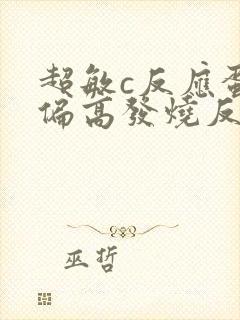 超敏c反應蛋
偏高發燒反
巫哲